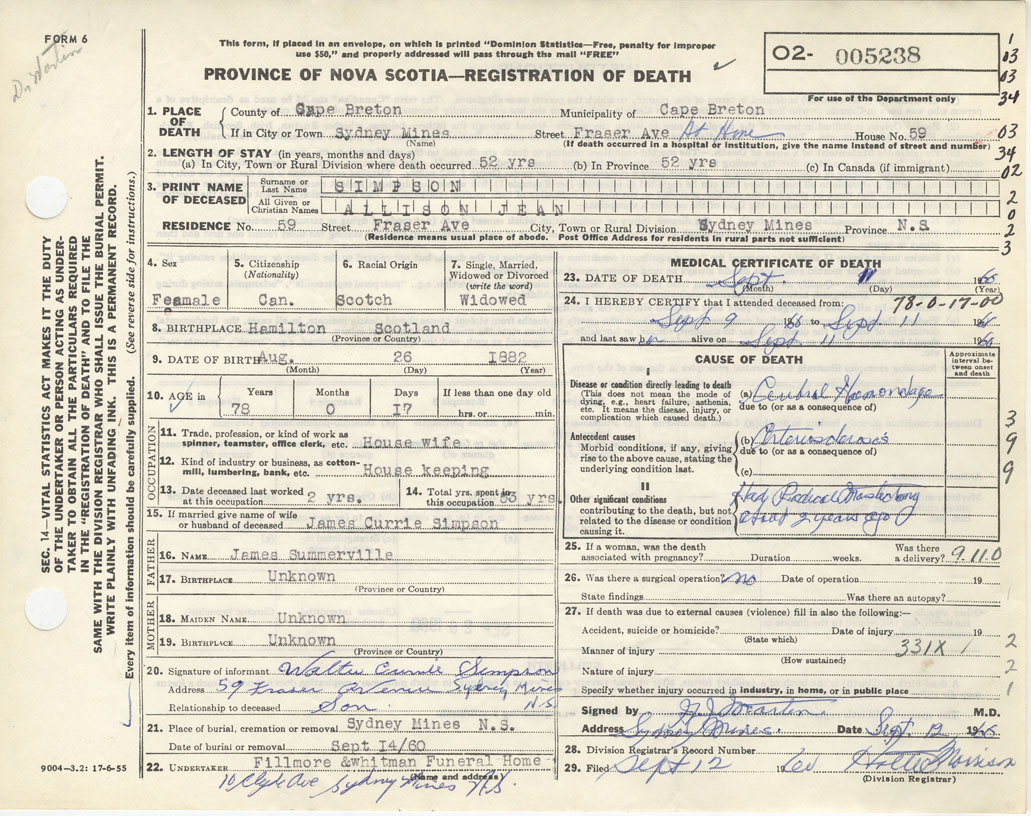 FORM 6
Dr Martin
This form, if placed in an envelope, on which is printed "Dominion Statistics—Free, penalty for improper
use $50," and properly addressed will pass through the mail "FREE"
PROVINCE OF NOVA SCOTIA—REGISTRATION OF DEATH
O2- 005238
For use of the Department only
1
03
03
34
03
34
02
2
0
2
3
1. PLACE OF DEATH
County of Cape Breton Municipality of Cape Breton
If in City or Town Sydney Mines Street Fraser Ave At Home House No. 59
(Name) (If death occurred in a hospital or institution, give the name instead of street and number)
2. LENGTH OF STAY (in years, months and days)
(a) In City, Town or Rural Division where death occurred 52 yrs (b) In Province 52 yrs (c) In Canada (if immigrant)
3. PRINT NAME OF DECEASED
Surname or Last Name SIMPSON
All Given or Christian Names ALLISON JEAN
RESIDENCE No. 59 Street Fraser Ave City, Town or Rural Division Sydney Mines Province N.S.
(Residence means usual place of abode. Post Office Address for residents in rural parts not sufficient)
SEC. 14—VITAL STATISTICS ACT MAKES IT THE DUTY
OF THE UNDERTAKER OR PERSON ACTING AS UNDER-
TAKER TO OBTAIN ALL THE PARTICULARS REQUIRED
IN THE REGISTRATION OF DEATH AND TO FILE THE
SAME WITH THE DIVISION REGISTRAR WHO SHALL ISSUE THE BURIAL PERMIT.
WRITE PLAINLY WITH UNFADING INK. THIS IS A PERMANENT RECORD.
Every item of information should be carefully supplied. (See reverse side for instructions.)
4. Sex
Feamale
5. Citizenship
(Nationality)
Can.
6. Racial Origin
Scotch
7. Single, Married,
Widowed or Divorced
(write the word)
Widowed
8. BIRTHPLACE Hamilton Scotland
(Province or Country)
9. DATE OF BIRTH Aug. 26 1882
(Month) (Day) (Year)
10. AGE in
Years Months Days If less than one day old
78 0 17 hrs. or min.
OCCUPATION
11. Trade, profession, or kind of work as
spinner, teamster, office clerk, etc. House wife
12. Kind of industry or business, as cotton-
mill, lumbering, bank, etc. House keeping
13. Date deceased last worked
at this occupation 2 yrs.
14. Total yrs. spent in
this occupation 53 yrs.
15. If married give name of wife
or husband of deceased James Currie Simpson
FATHER
16. NAME James Summerville
17. BIRTHPLACE Unknown
(Province or Country)
MOTHER
18. MAIDEN NAME Unknown
19. BIRTHPLACE Unknown
(Province or Country)
20. Signature of informant Walter Currie Simpson
Address 59 Fraser Avenue Sydney Mines N.S.
Relationship to deceased Son
21. Place of burial, cremation or removal Sydney Mines N.S.
Date of burial or removal Sept 14/60
22. UNDERTAKER Fillmore &whitman Funeral Home
(Name and address)
10 Clyde Ave Sydney Mines N.S.
9004-3.2: 17-6-55
MEDICAL CERTIFICATE OF DEATH
23. DATE OF DEATH Sept. 11 1960
(Month) (Day) (Year)
78-0-17-00
24. I HEREBY CERTIFY that I attended deceased from:
Sept 9 1960 to Sept. 11 1960
and last saw her alive on Sept 11 1960
CAUSE OF DEATH
Approximate
interval be-
tween onset
and death
I
Disease or condition directly leading to death
(This does not mean the mode of
dying, e.g., heart failure, asthenia,
etc. It means the disease, injury, or
complication which caused death.)
(a) Cerebral Haemorrhage
due to (or as a consequence of)
Antecedent causes
Morbid conditions, if any, giving
rise to the above cause, stating the
underlying condition last.
(b) Arteriosclerosis
due to (or as a consequence of)
(c)
II
Other significant conditions
contributing to the death, but not
related to the disease or condition
causing it.
Had Radical Mastectomy
about 2 years ago
3
9
9
25. If a woman, was the death
associated with pregnancy? Duration weeks. Was there
a delivery? 9.110
26. Was there a surgical operation? no Date of operation 19
State findings Was there an autopsy?
27. If death was due to external causes (violence) fill in also the following:—
Accident, suicide or homicide? Date of injury 19
(State which)
Manner of injury 331X 1
(How sustained)
Nature of injury
Specify whether injury occurred in industry, in home, or in public place
2
2
1
Signed by Martin M.D.
Address Sydney Mines. Date Sept. 12 1960
28. Division Registrar's Record Number
29. Filed Sept 12 1960 Morrison
(Division Registrar)